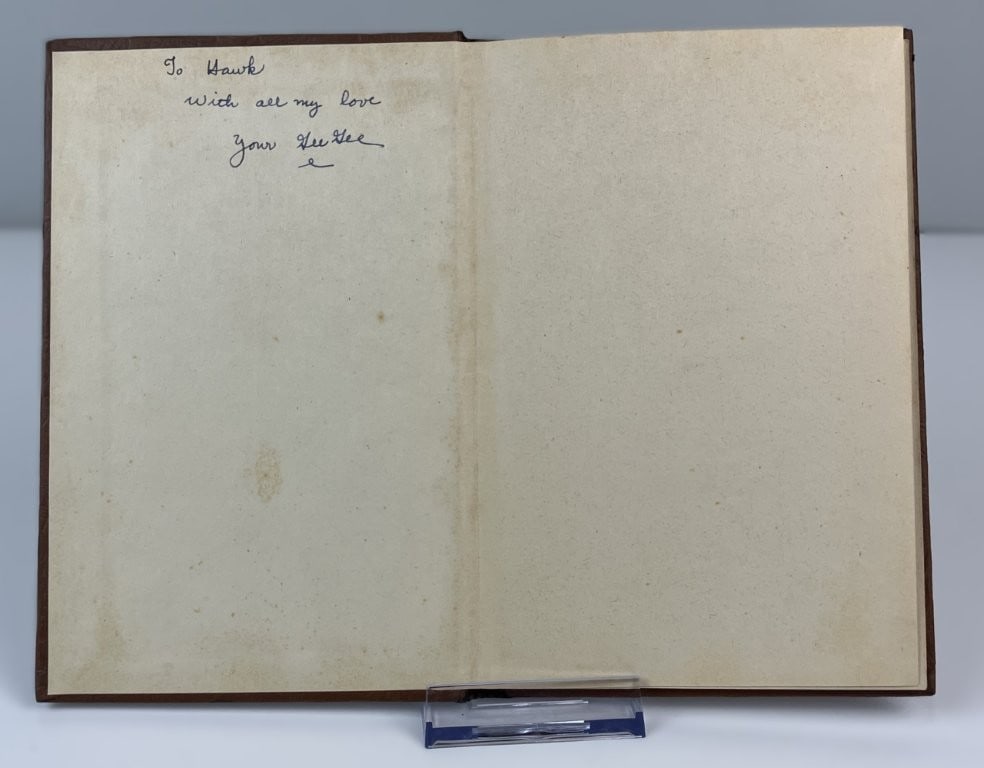 To Hawk
With all my love
Your GeeGee